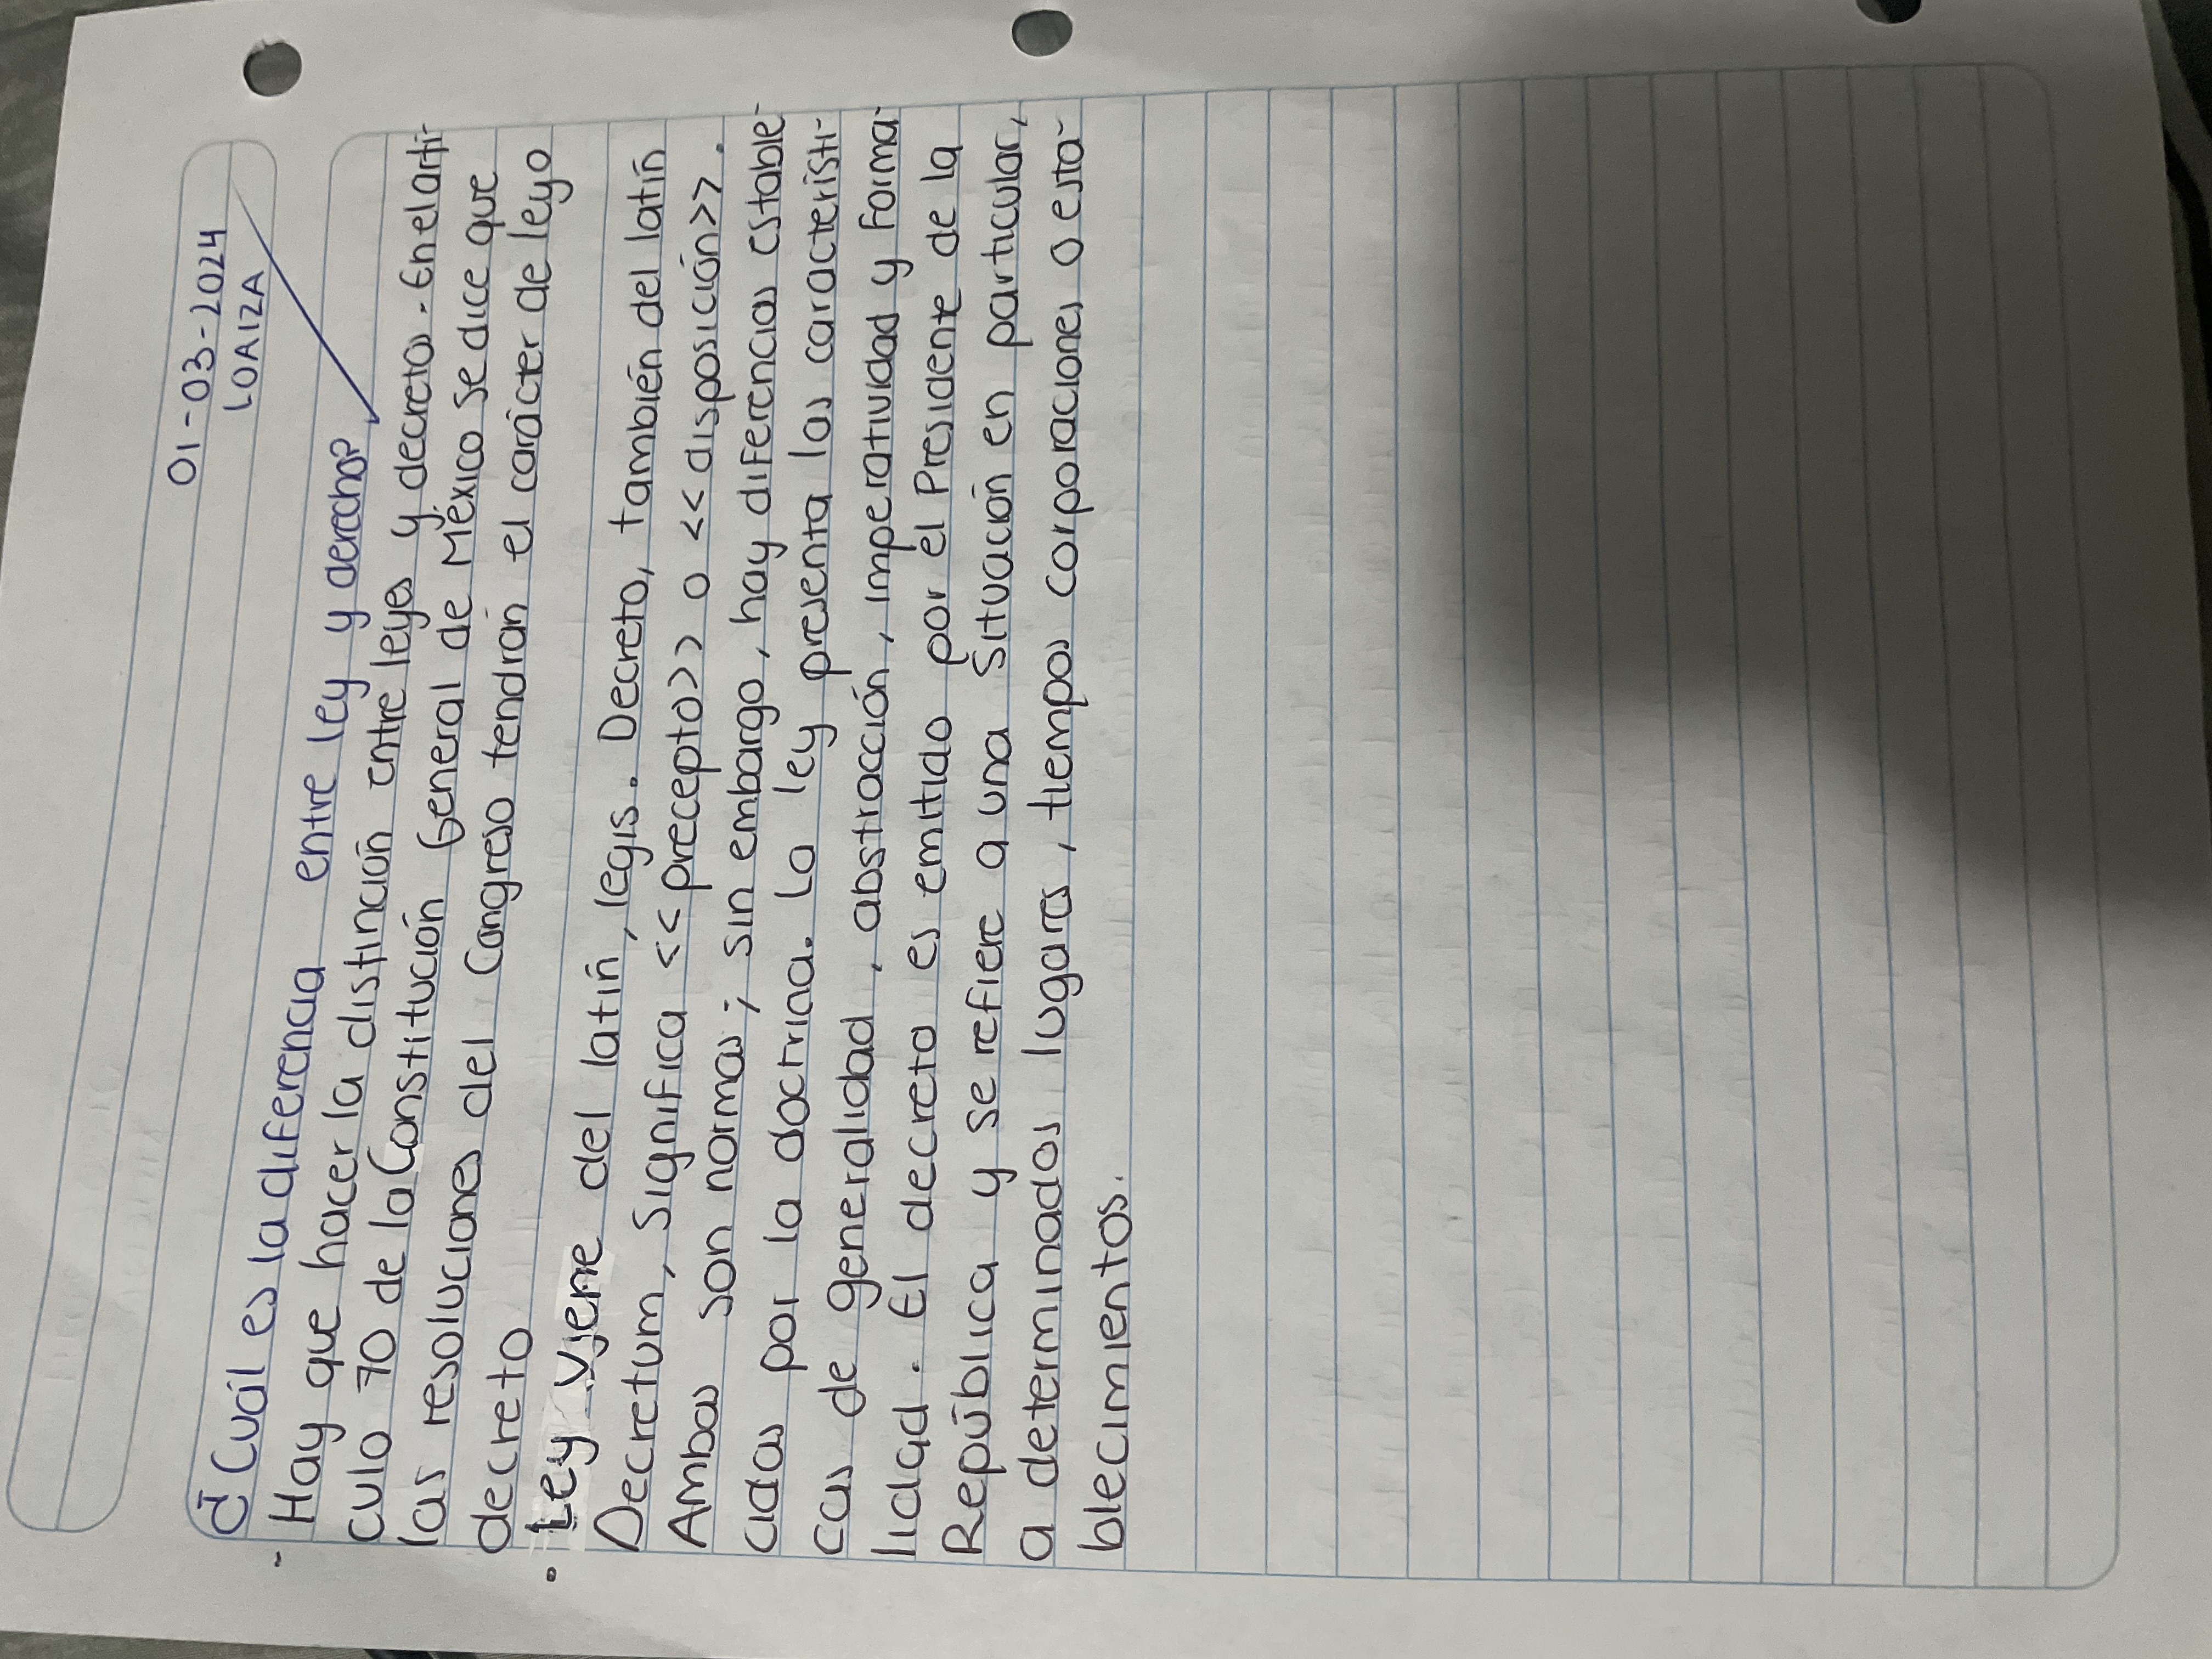 01-03-2024
LOAIZA
¿Cuál es la diferencia entre ley y derecho?
- Hay que hacer la distinción entre leyes y decretos. En el artí-
culo 70 de la Constitución General de México se dice que
las resoluciones del Congreso tendrán el carácter de ley o
decreto
• Ley viene del latín, legis. Decreto, también del latín
Decretum, significa <<precepto>> o <<disposición>>.
Ambas son normas; sin embargo, hay diferencias estable-
cidas por la doctrina. La ley presenta las característi-
cas de generalidad, abstracción, imperatividad y forma-
lidad. El decreto es emitido por el Presidente de la
República y se refiere a una situación en particular,
a determinados lugares, tiempos corporaciones o esta-
blecimientos.